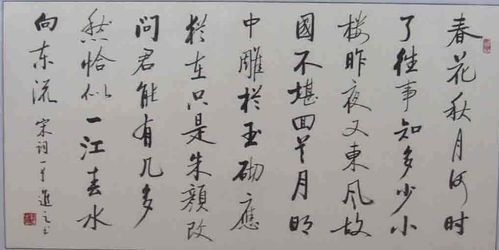 春花秋月何时
了往事知多少小
楼昨夜又東风故
國不堪回首月明
中雕栏玉砌應
猶在只是朱顔改
问君能有几多
愁恰似一江春水
向东流 宋词一首